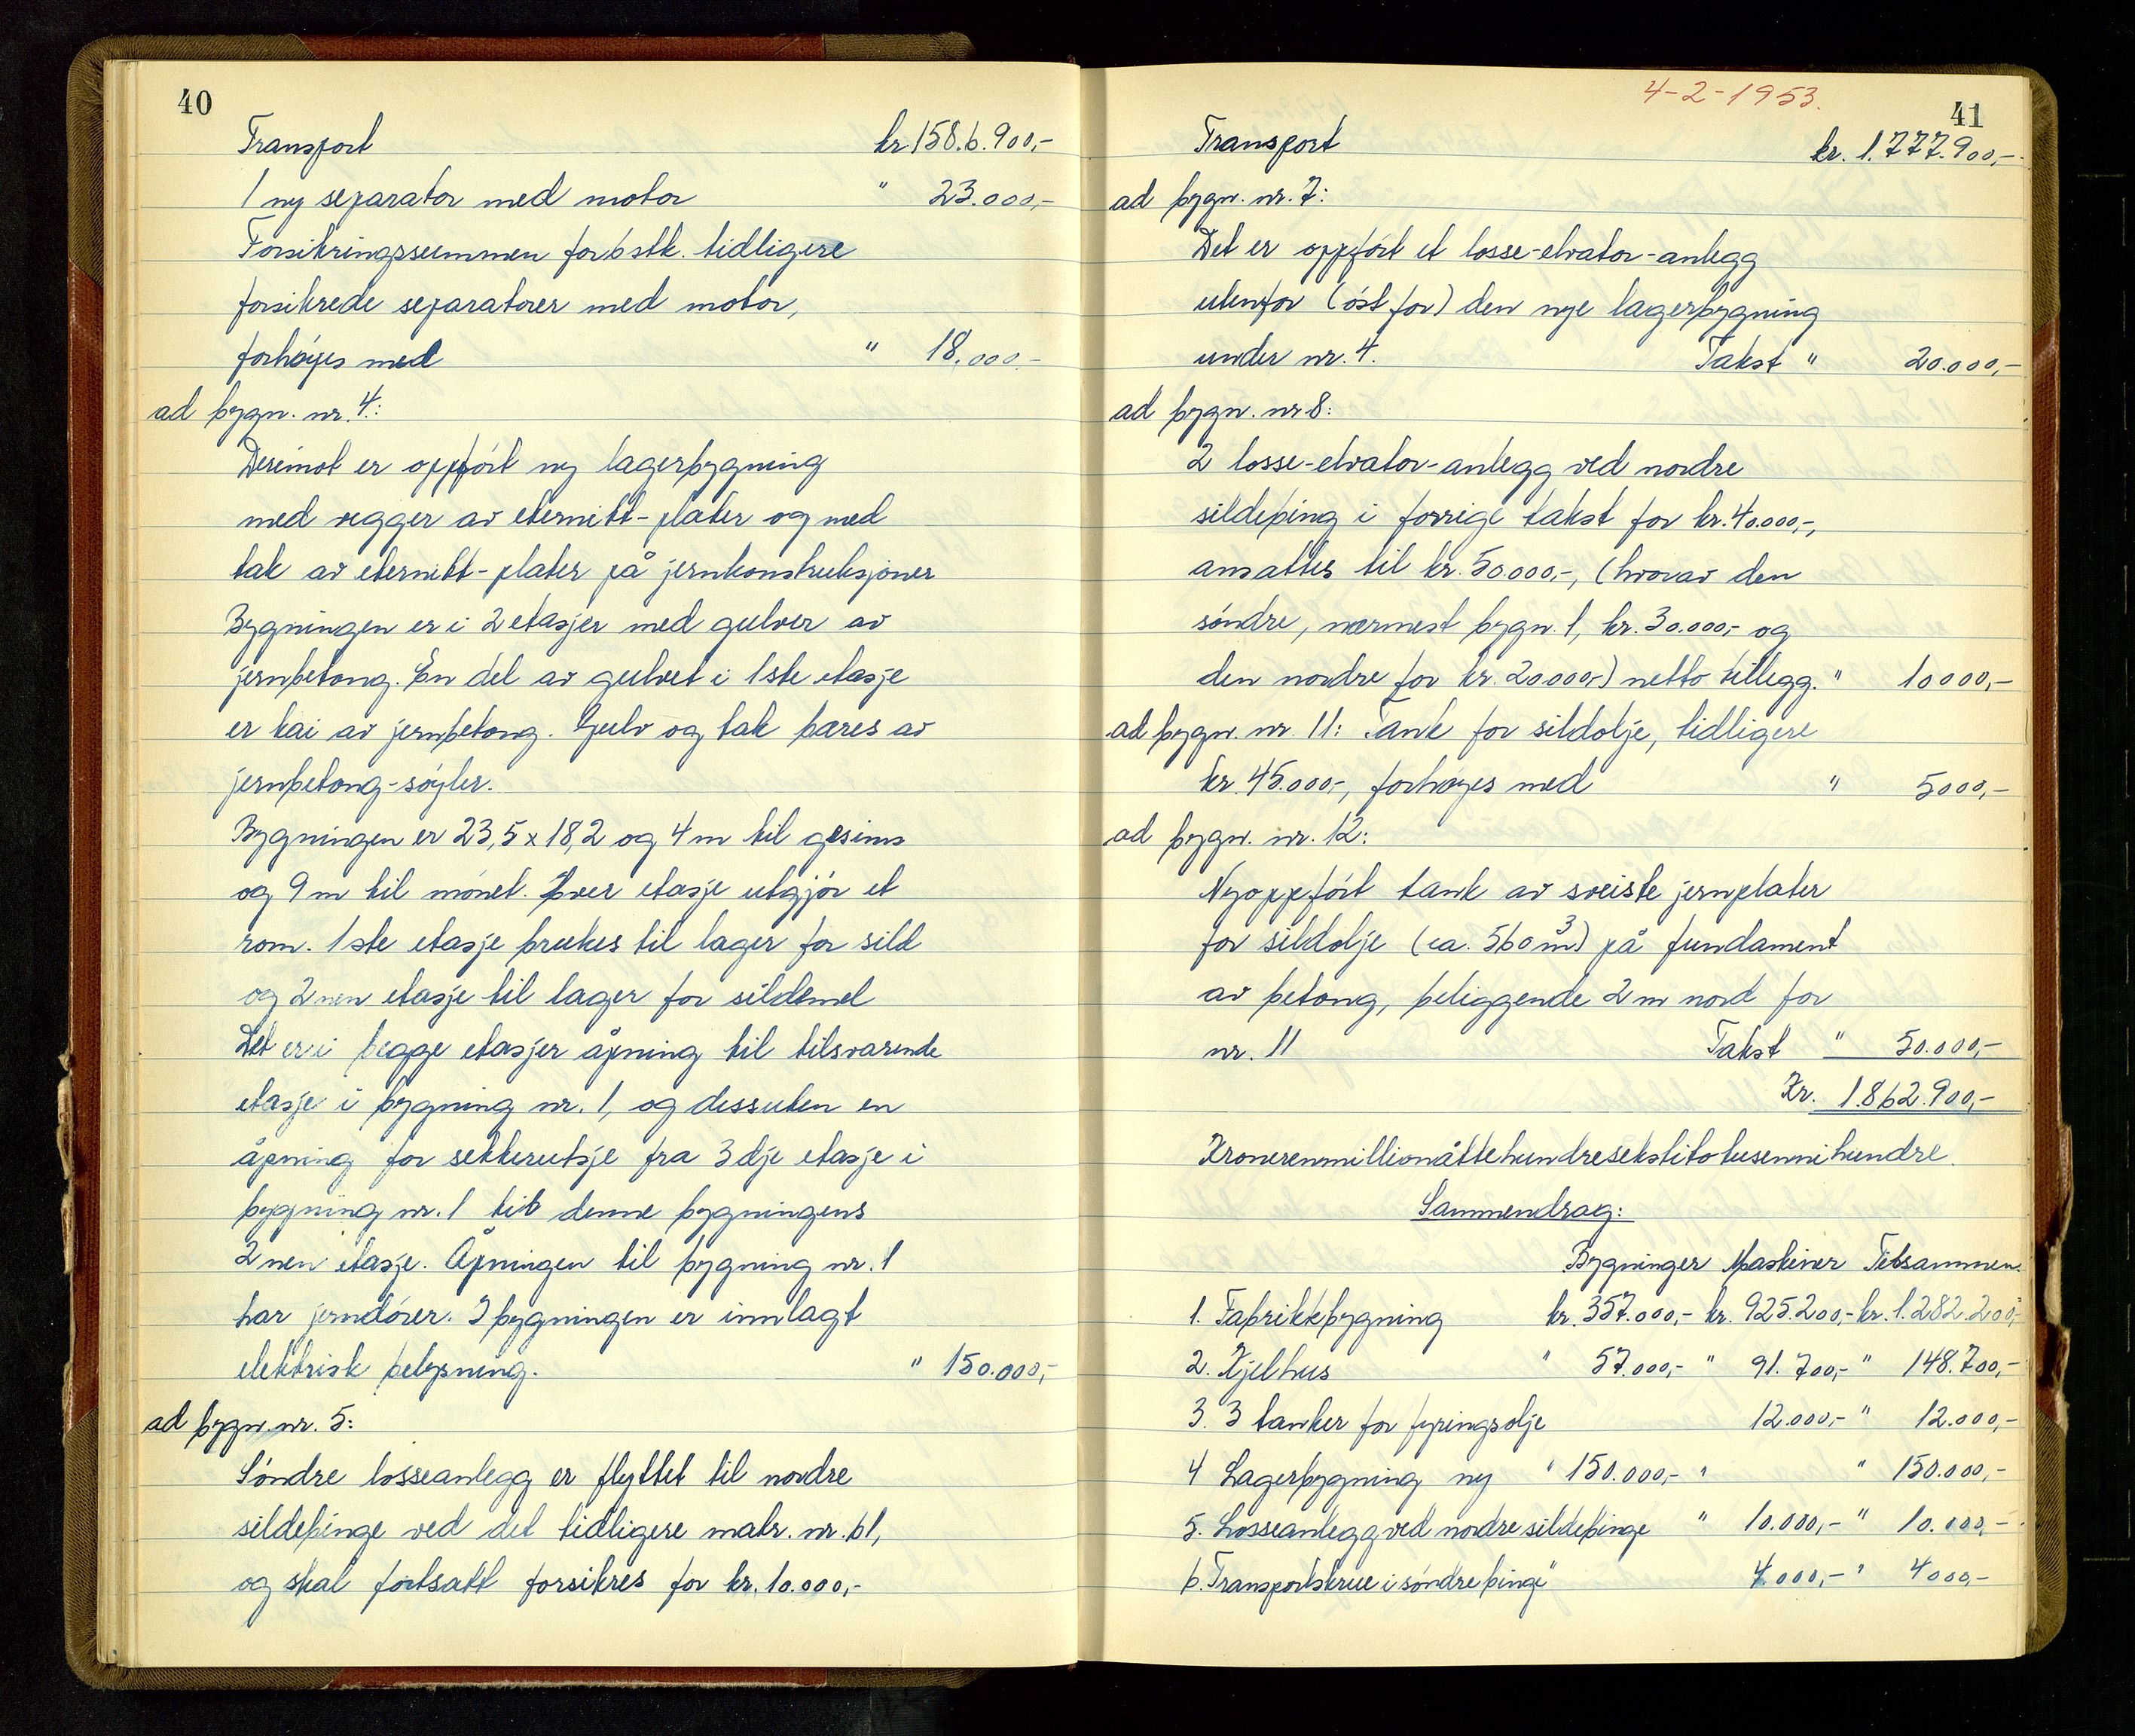 40
Transport kr 158.6.900,-
1 ny separator med motor " 23.000,-
Forsikringssummen for 6 stk. tidligere
forsikrede separatorer med motor,
forhøyes med " 18.000.-
ad bygn. nr. 4.:
Derimot er oppført ny lagerbygning
med vegger av eternitt-plater og med
tak av eternitt-plater på jernkonstruksjoner
Bygningen er i 2 etasjer med gulver av
jernbetong. En del av gulvet i 1ste etasje
er kai av jernbetong. Gulv og tak bæres av
jernbetong-søyler.
Bygningen er 23,5 x 18,2 og 4 m til gesims
og 9 m til mønet. Hver etasje utgjør et
rom. 1ste etasje brukes til lager for sild
og 2nen etasje til lager for sildemel
Det er i begge etasjer åpning til tilsvarende
etasje i bygning nr. 1, og dessuten en
åpning for sekkerutsje fra 3dje etasje i
bygning nr. 1 til denne bygningens
2nen etasje. Åpningen til bygning nr. 1
har jerndører. I bygningen er innlagt
elektrisk belysning. " 150.000,-
ad bygn. nr. 5:
Søndre losseanlegg er flyttet til nordre
sildebinge ved det tidligere matr. nr. 61,
og skal fortsatt forsikres for kr. 10.000,-
4-2-1953.
41
Transport kr. 1.777.900,-
ad bygn. nr. 7:
Det er oppført et losse-elvator-anlegg
utenfor (øst for) den nye lagerbygning
under nr. 4. Takst " 20.000,-
ad bygn. nr 8:
2 losse-elvator-anlegg ved nordre
sildebing i forrige takst for kr. 40.000,-,
ansattes til kr. 50.000,-, (hvorav den
søndre, nærmest bygn. 1, kr. 30.000,- og
den nordre for kr. 20.000,-) netto tillegg. " 10000,-
ad bygn. nr. 11: Tank for sildolje, tidligere
kr. 45.000,-, forhøyes med " 5000,-
ad bygn. nr. 12:
Nyoppført tank av sveiste jernplater
for sildolje (ca. 560 m3) på fundament
av betong, beliggende 2 m nord for
nr. 11 Takst " 50.000,-
Kr. 1.862.900,-
Kronerenmillionåttehundresekstitotusennihundre.
Sammendrag:
Bygninger Maskiner Tilsammen.
1. Fabrikkbygning kr. 357.000,- kr. 925.200,- kr. 1.282.200,-
2. Kjelhus " 57.000,- " 91.700,- " 148.700,-
3. 3 tanker for fyringsolje 12.000,- " 12.000,-
4 Lagerbygning ny " 150.000,- " " 150.000,-
5. Losseanlegg ved nordre sildebinge " 10.000,- " 10.000,-
6. Transportskrue i søndre binge " 4.000,- " 4000,-